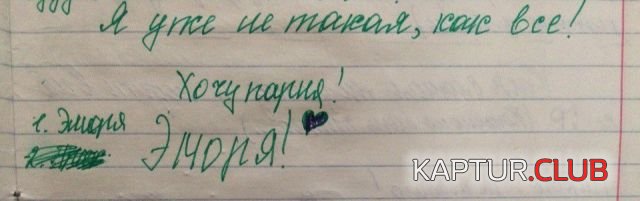 Я уже не такая, как все!
Хочу парня!
1. Эмаря
Эмаря!
KAPTUR.CLUB